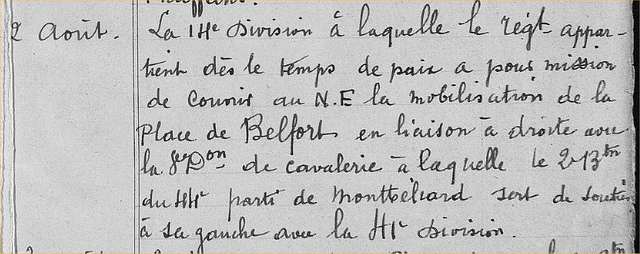 2 Août. La 14e Division à laquelle le régt appar-
tient dès le temps de paix a pour mission
de couvrir au N.E la mobilisation de la
Place de Belfort en liaison à droite avec
la 8e Don de cavalerie à laquelle le 2e Btn
du 44e parti de Montbéliard sert de soutien
à sa gauche avec la 41e Division.